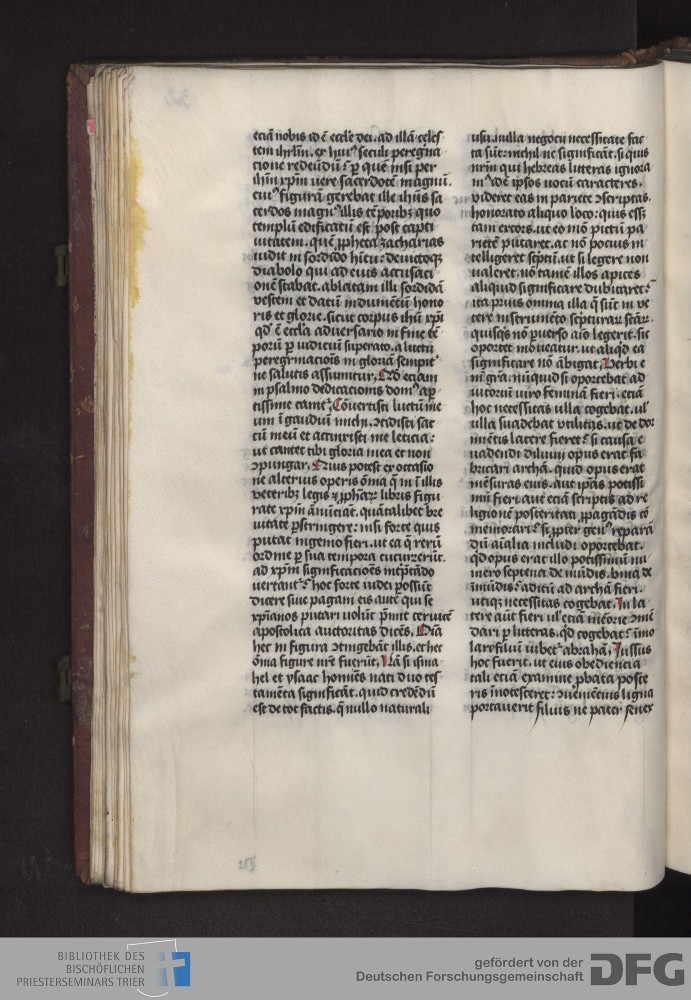 etiā nobis id ē eccl'e dei. ad illā celes
tem ihrl̄m. ex hui᷒ seculi peregͥna
tione redeūdū ē p quē nisi per
ihm̄ xp̄m vere sacerdotē magnū.
cui᷒ figurā gerebat ille ihūs sa
cerdos magn᷒ illis tēporibꝫ quo
templū edificatū est post capti
uitatem. quē ꝓpheta zacharias
uidit in sordido hītu: deuictoqꝫ
diabolo qui ad eius accusati
onē stabat. ablatam illi sordidā
vestem et datū indumētū hono
ris et glorie. sicut corpus ihū xp̄i
qd̓ ē eccl̄a aduersario in fine tē
porū ꝑ iudiciū superato. a luctu
peregrinaciōis in gloriā sempit᷒
ne salutis assumitur. Qd̓ eciam
in psalmo dedicacionis dom᷒ ap
tissime canit̓. Cōuertisti luctū me
um ī gaudiū michi. ↄcidisti sac
cū meū et accinxisti me leticia:
ut cantet tibi gloria mea et non
ↄpungar. Quis potest ex occasio
ne alterius operis ōmia q̄ in illis
veteribꝫ legis ꝓph̄arꝫ libris figu
rate xp̄m ānūciāt. quātalibet bre
uitate ꝑstringere: nisi forte quis
putat ingenio fieri. ut ea q̄ rerū
ordine ꝑ sua tempora cucurrerūt.
ad xp̄m significacioēs int̓ꝑtādo
uertant̓. hoc forte iudei possūt
dicere siue pagani eis autē qui se
xp̄ianos putari uolūt p̄mit ceruicē
apostolica auctoritas dicēs. Oīa
hec in figura ↄtingebāt illis. et hec
ōmia figure nr̄e fuerūt. Nā si isma
hel et ysaac homīes nati duo tes
tamēta significāt. quid credēdū
est de tot factis. q̄ nullo naturali
usu. nulla negocii necessitate fac
ta sūt: nichil ne significāt. si quis
nr̄m qui hebreas litteras ignora
m᷒ id ē ipsos uocū caracteres.
uideret eas in pariete ↄscriptas.
honorato aliquo loco: quis esset
tam excors. ut eo mō pictū pa
rietē putaret. ac nō pocius in
telligeret sc̄ptū. ut si legere non
ualeret. nō tamē illos apices
aliquid significare dubitaret:
ita prius omnia illa q̄ sūt in ve
tere instrumēto scripturarꝫ scārꝫ.
quisqͥs nō ꝑuerso aīo legerit. sic
oportet moueatur. ut aliqd̓ ea
significare nō ābigat. Verbi e
ni grā. nūquid si oportebat ad
iutoriū uiro feminā fieri. etiā
hoc necessitas ulla cogebat. ul'
ulla suadebat utilitas. ut de dor
miētis latere fieret: si causa e
uadendi diluuii opus erat fa
bricari archā. quid opus erat
mēsuras eius. aut ip̄as potissi
mū fieri aut etiā scriptis ad re
ligionē posteritati ꝓpagādis cō
memorari: si ꝓpter gen᷒ reparā
dū aīalia includi oportebat.
qd̓ opus erat illo potissimū nu
mero septena de mūdis. bina de
inmūdis: aditū ad archā fieri.
utiqꝫ necessitas cogebat. In la
tere aūt fieri ul' etiā mēorie ↄmē
dari ꝑ litteras. qd̓ cogebat: īmo
lare filiū iubet᷒ abrahā. Iussus
hoc fuerit. ut eius obediencia
tali etiā examine ꝓbata poste
ris īnotesceret: ↄueniētius ligna
portauerit filius ne pater senex
BIBLIOTHEK DES
BISCHÖFLICHEN
PRIESTERSEMINARS TRIER
gefördert von der
Deutschen Forschungsgemeinschaft
DFG